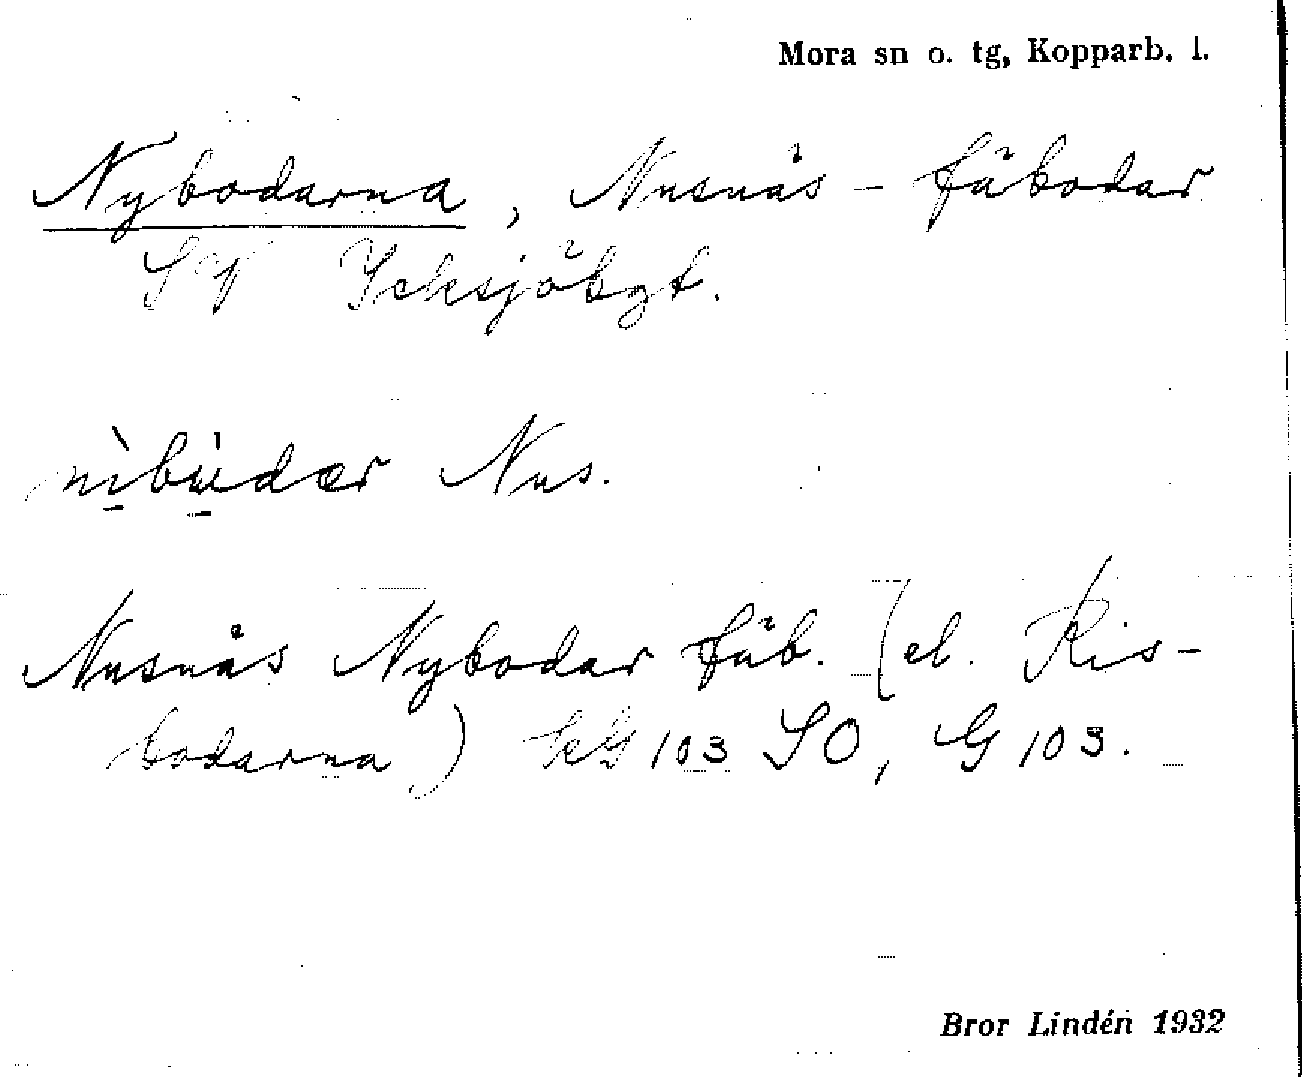 Mora sn o. tg, Kopparb. l.
Nybodarna, Nusnäs - fäbodar
SV Icksjöbgt.
nìbùdær Nus.
Nusnäs Nybodar fäb. (el. Ris-
bodarna) SkG 103 SO, G 103.
Bror Lindén 1932